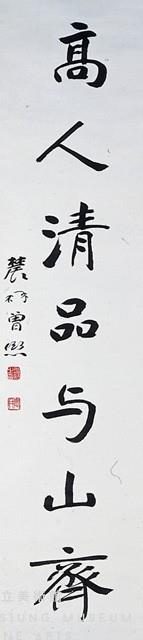 高人清品与山齊
農髯曾熙
立美術館
SIUNG MUSEUM
NE ARTS